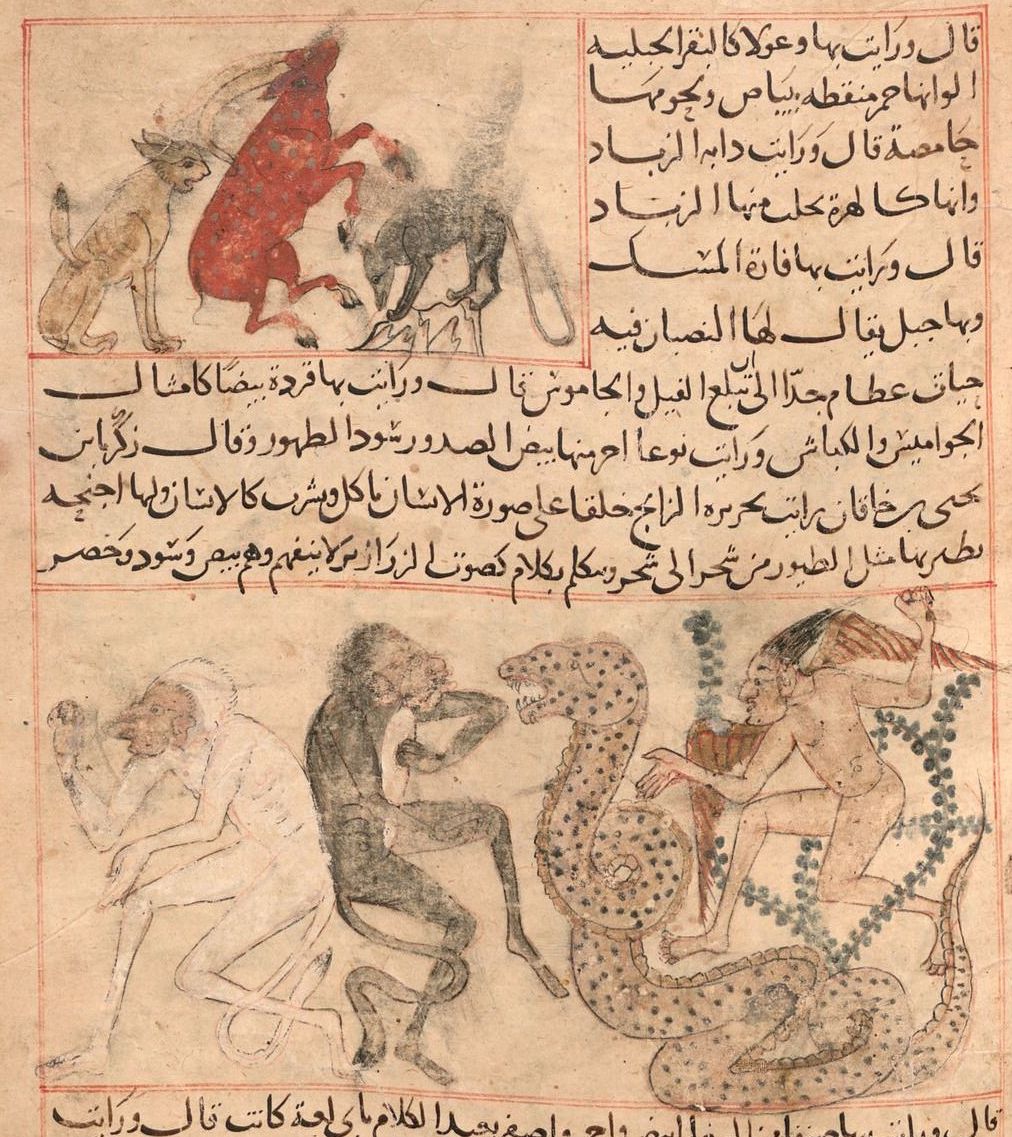 قال ورايت بها وعولا كالبقر الجبليه
الوانها حمر منقطه ببياض ولحومها
حامصة قال ورايت دابه الزباد
وانها كالهرة يحلب منها الزباد
قال ورايت بها فارة المسك
وبها جبل يقال لها النصبان فيه
حيات عظام جدّا الى ان تبلع الفيل والجاموش قال ورايت بها قردة بيضًا كامثال
الجواميش والكباش ورايت نوعا اخر منها بيض الصدور سُود الظهور وقال زكريا بن
يحيى بن خاقان رايت بجزيرة الزابج خلقا على صورة الانسان ياكل ويشرب كالانسان ولها اجنحه
يطير بها مثل الطيور من شجر الى شجر ويتكلم بكلام كصوت الزرازير لا ينفهم وهم بيض وسُود وخضر
قال ورايت بها الكلام باي لغة كانت قال ورايت